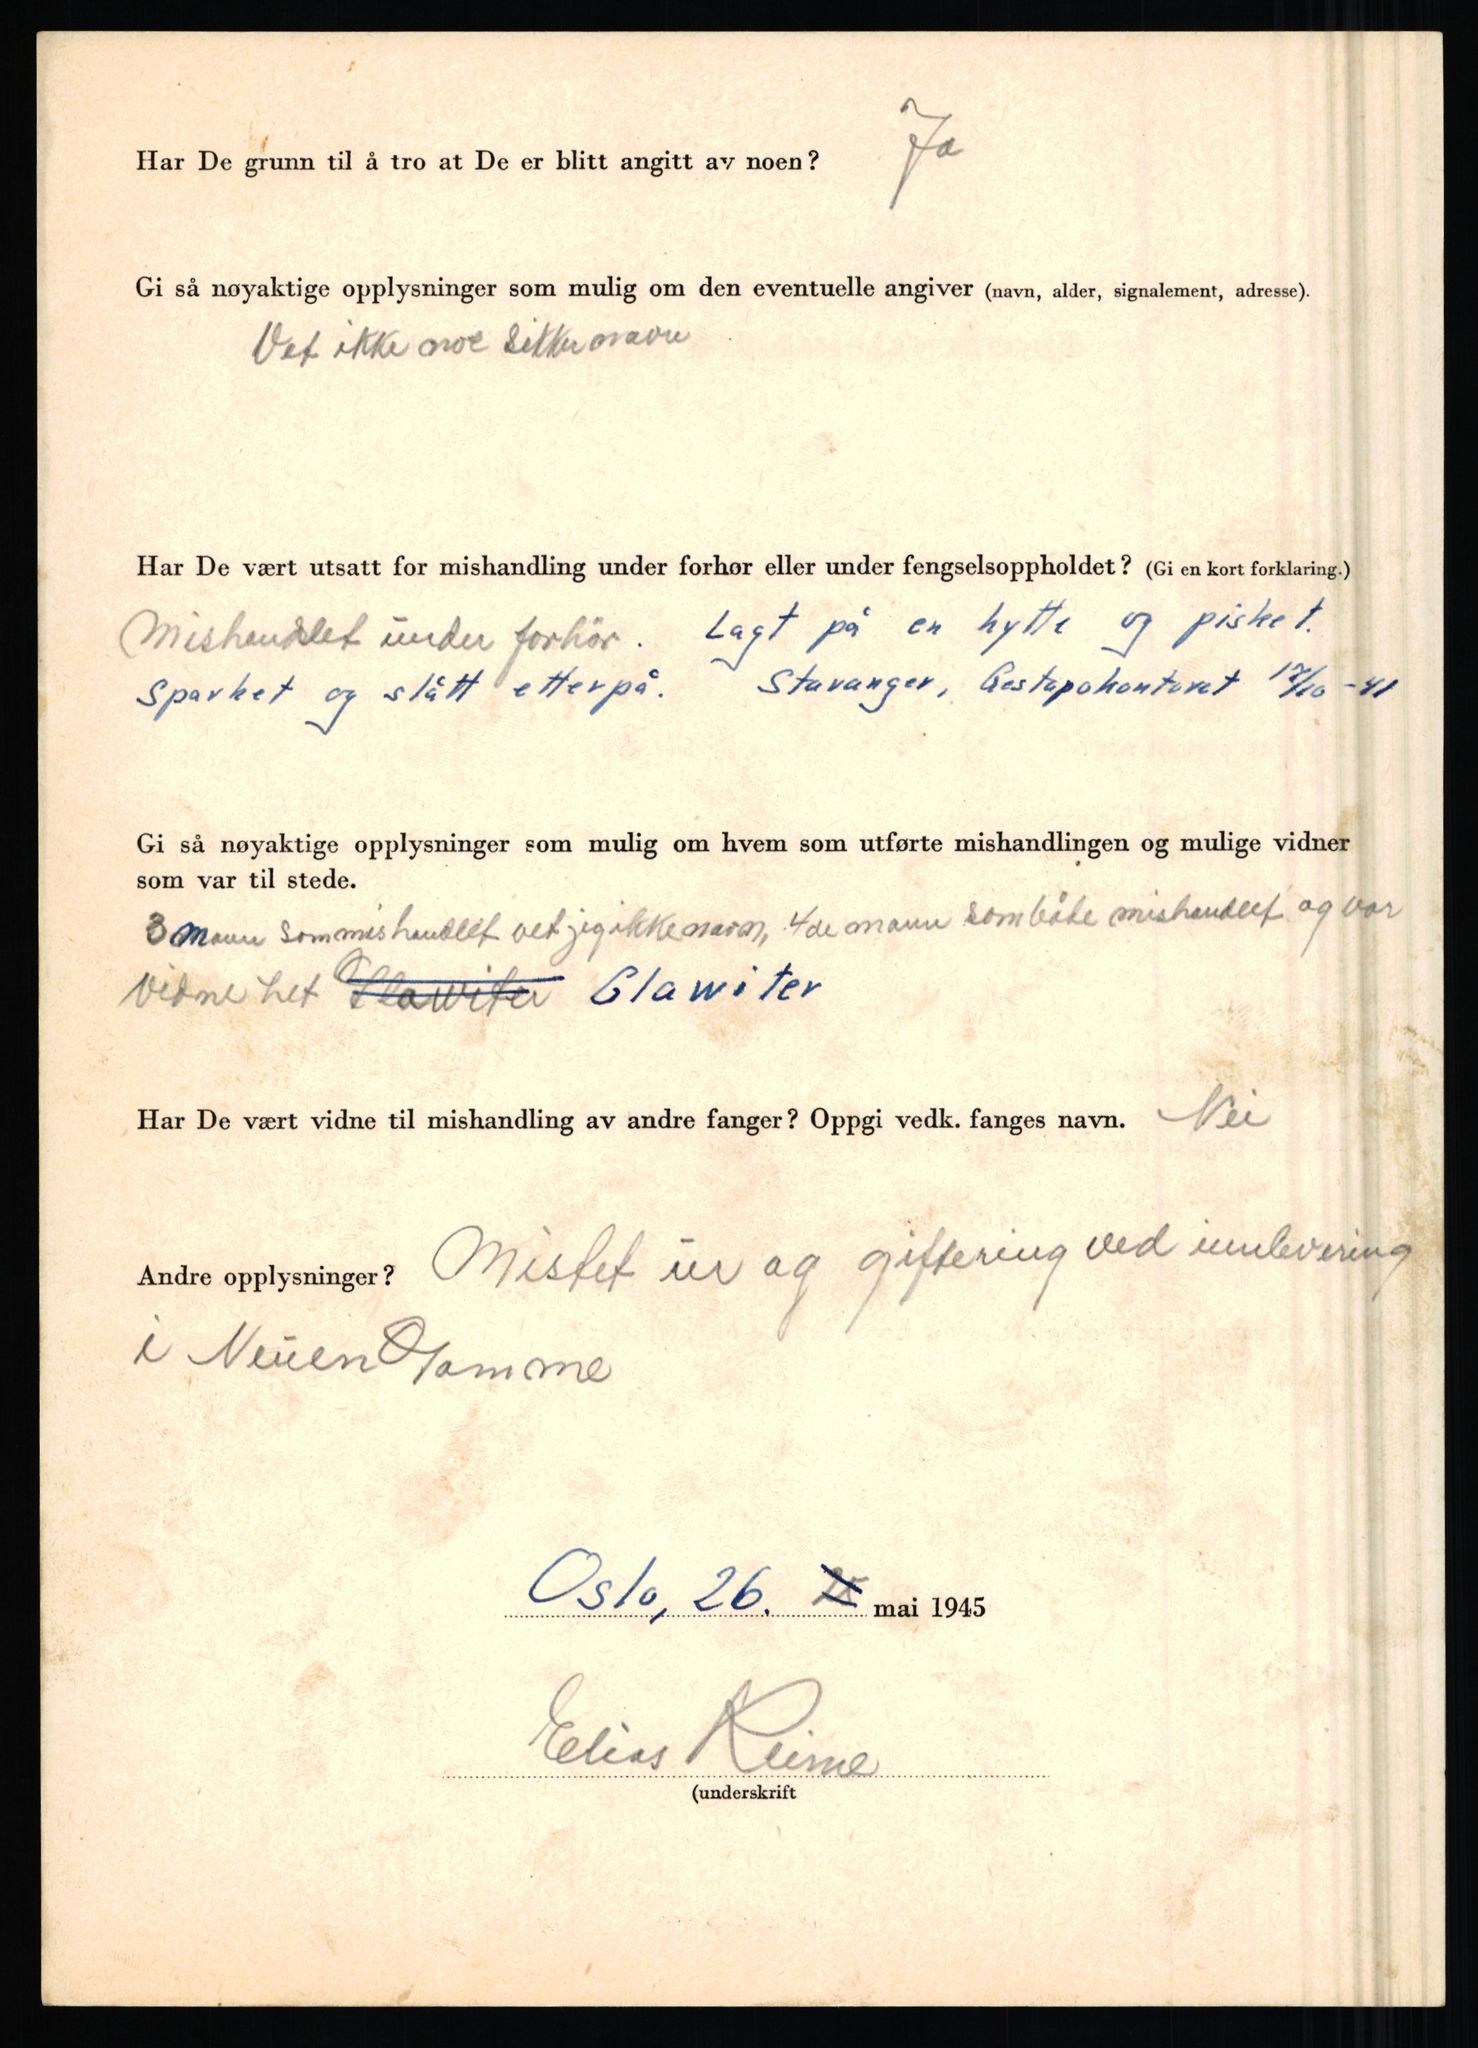 Har De grunn til å tro at De er blitt angitt av noen? Ja
Gi så nøyaktige opplysninger som mulig om den eventuelle angiver (navn, alder, signalement, adresse).
Vet ikke noe sikker navn
Har De vært utsatt for mishandling under forhør eller under fengselsoppholdet? (Gi en kort forklaring.)
Mishandlet under forhör. Lagt på en hytte og pisket.
Sparket og slått etterpå. Stavanger, Gestapokontoret 17/10-41
Gi så nøyaktige opplysninger som mulig om hvem som utførte mishandlingen og mulige vidner
som var til stede.
3 mann som mishandlet vet jeg ikke navn, 4de mann som både mishandlet og var
Vidne het Clawiter
Har De vært vidne til mishandling av andre fanger? Oppgi vedk. fanges navn. Nei
Andre opplysninger? Mistet ur og giftering ved innlevering
i Neuen Gamme
Oslo, 26. mai 1945
Elias Reime
(underskrift